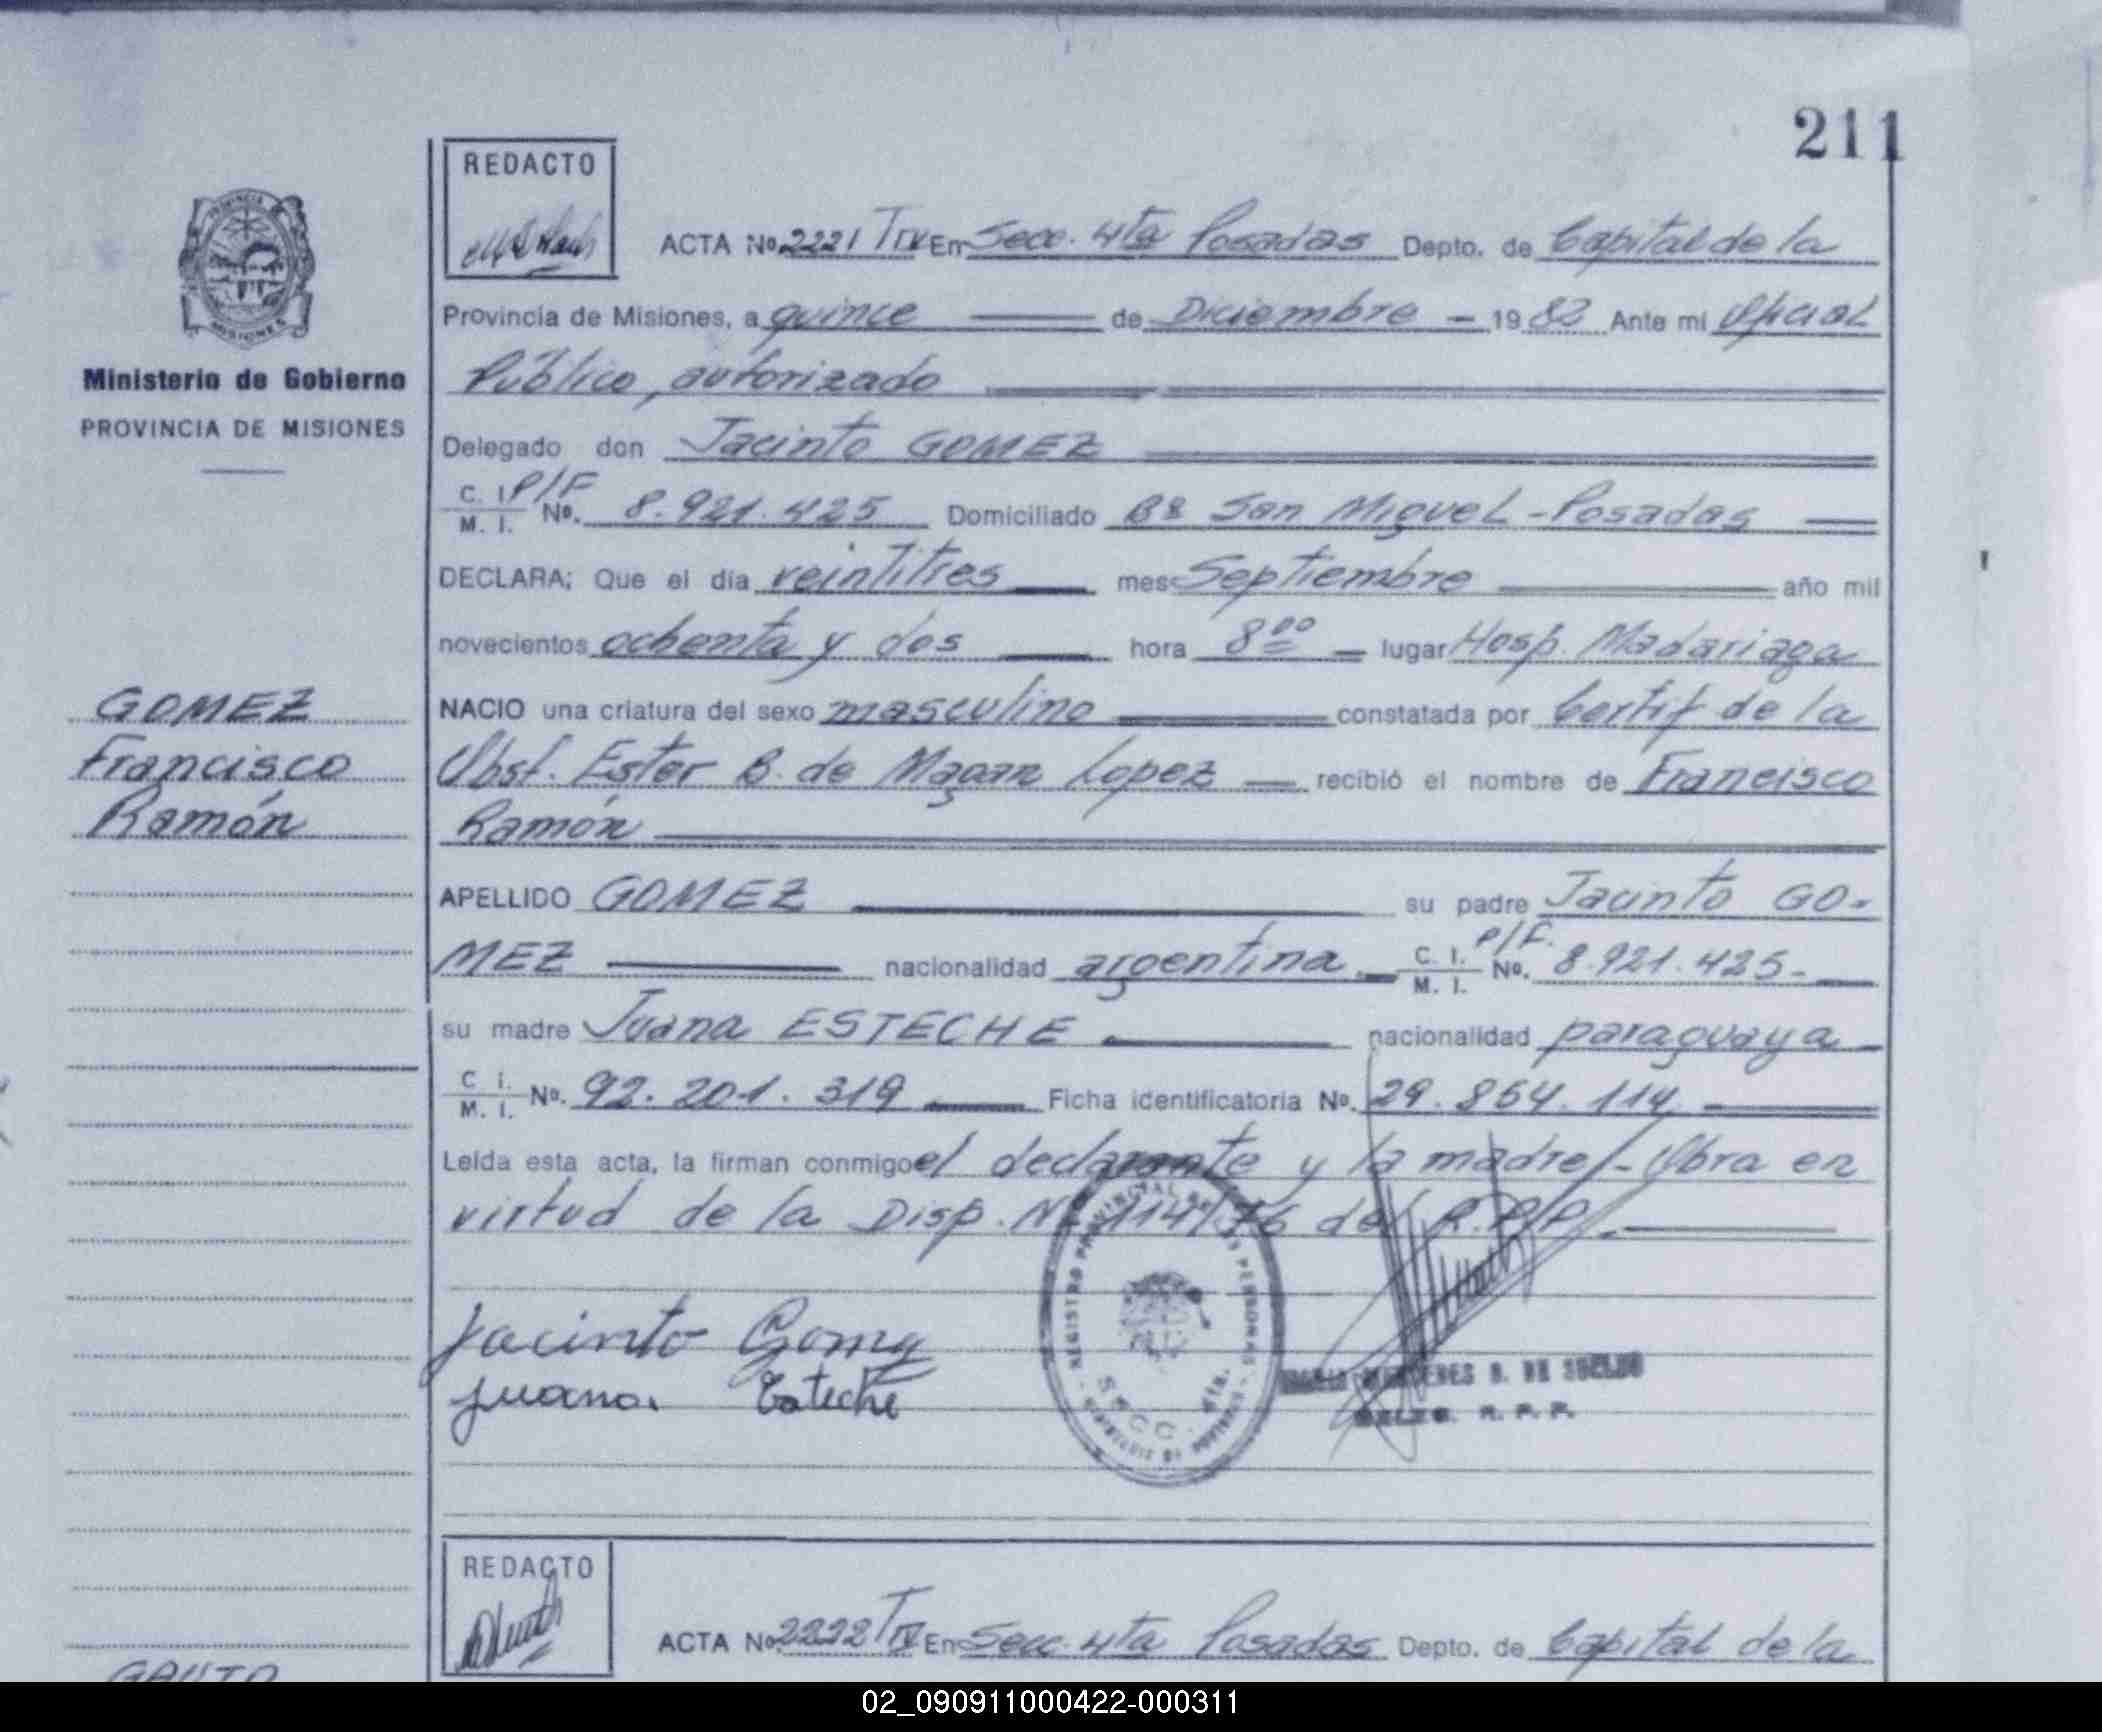 211
REDACTO
ACTA Nº 2221 T IV En Secc. 4ta Posadas Depto. de Capital de la
Provincia de Misiones, a quince de Diciembre - 1982 Ante mi Oficial
Público, autorizado
Ministerio de Gobierno
PROVINCIA DE MISIONES
Delegado don Jacinto GOMEZ
C. I. P/F
M. I. Nº. 8.921.425 Domiciliado Bº San Miguel - Posadas
DECLARA; Que el día veintitres mes Septiembre año mil
novecientos ochenta y dos hora 8 00 lugar Hosp. Madariaga
GOMEZ
Francisco
Ramón
NACIO una criatura del sexo masculino constatada por Certif de la
Obst. Ester B. de Magan Lopez recibió el nombre de Francisco
Ramón
APELLIDO GOMEZ su padre Jacinto GO-
MEZ nacionalidad argentina C. I. P/F. M. I. Nº. 8.921.425.
su madre Juana ESTECHE nacionalidad paraguaya
C. I. M. I. Nº. 92.201.319 Ficha identificatoria Nº. 29.864.114
Leída esta acta, la firman conmigo el declarante y la madre - Obra en
virtud de la Disp. Nº 114/76 del R.P.P.
Jacinto Gomez
Juana Esteche
REGISTRO PROVINCIAL DE LAS PERSONAS
SECC. 4ta.
DE
R. P. P.
REDACTO
ACTA Nº 2222 T IV En Secc. 4ta Posadas Depto. de Capital de la
02_090911000422-000311